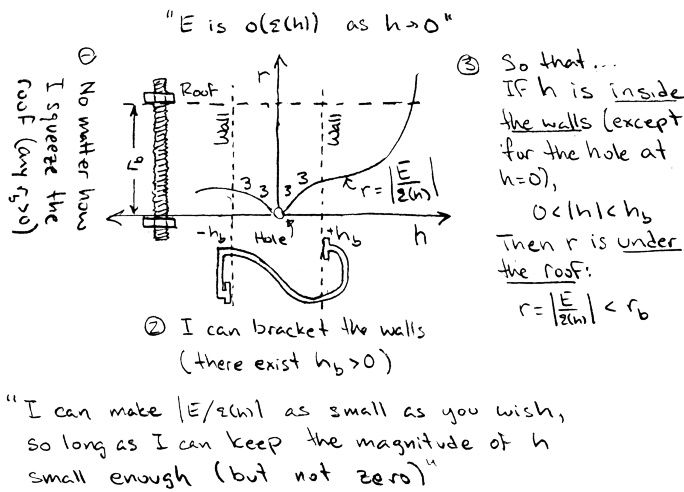 "E is o(ε(h)) as h→0"
① No matter how
I squeeze the
roof (any r_b>0)
r
Roof
wall
wall
r_b
3
3
3
3
r=|E/ε(h)|
-h_b
Hole
+h_b
h
② I can bracket the walls
(there exist h_b>0)
③ So that...
IF h is inside
the walls (except
for the hole at
h=0),
0<|h|<h_b
Then r is under
the roof:
r=|E/ε(h)| < r_b
"I can make |E/ε(h)| as small as you wish,
so long as I can keep the magnitude of h
small enough (but not zero)"